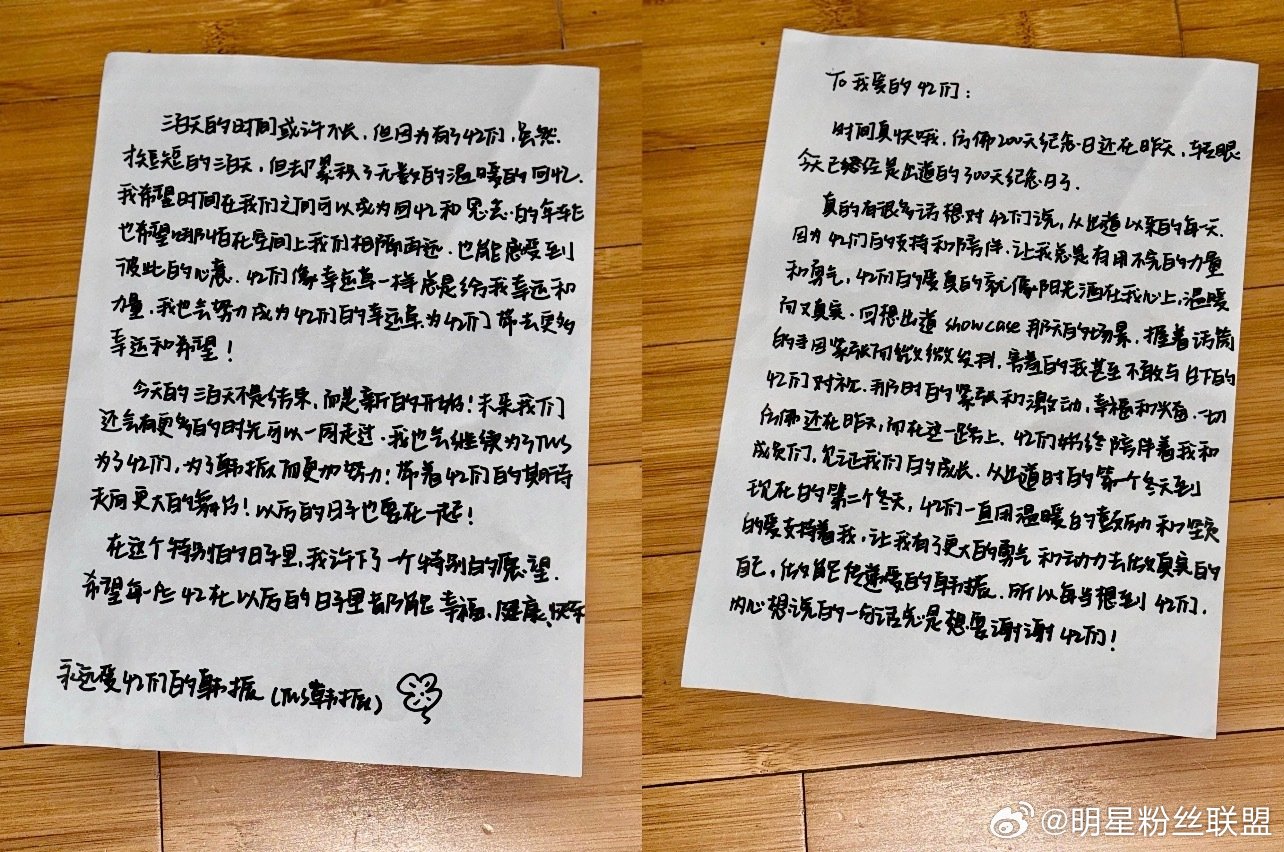 To 我爱的42们：
时间真快哦，仿佛200天纪念日还在昨天，转眼
今天已经是出道的300天纪念日了.
真的有很多话想对42们说，从出道以来的每一天.
因为42们的支持和陪伴.让我总是有用不完的力量
和勇气，42们的爱真的就像阳光洒在我心上，温暖
而又真实.回想出道showcase那天的场景，握着话筒
的手因紧张而微微发抖，害羞的我甚至不敢与台下的
42们对视.那时的紧张和激动，幸福和兴奋.一切
仿佛还在昨天，而在这一路上.42们始终陪伴着我和
成员们，见证我们的成长.从出道时的第一个冬天到
现在的第二个冬天，42们一直用温暖的鼓励和坚定
的爱支持着我，让我有了更大的勇气和动力去做真实的
自己，做能传递爱的韩振.所以每当想到42们.
内心想说的一句话总是想要谢谢42们！
三百天的时间或许不长，但因为有了42们，虽然
短短的三百天，但却累积了无数的温暖的回忆.
我希望时间在我们之间可以成为回忆和思念的牵绊
也希望哪怕在空间上我们相隔再远.也能感受到
彼此的心意.42们像幸运草一样总是给我幸运和
力量，我也会努力成为42们的幸运草为42们带去更多
幸运和希望！
今天的三百天不是结束，而是新的开始！未来我们
还会有更多的时光可以一同走过.我也会继续为了TWS
为了42们，为了韩振而更加努力！带着42们的期待
走向更大的舞台！以后的日子也要在一起！
在这个特别的日子里，我许下了一个特别的愿望.
希望每一位42在以后的日子里都能幸福、健康、快乐
永远爱42们的韩振（TWS韩振）
@明星粉丝联盟